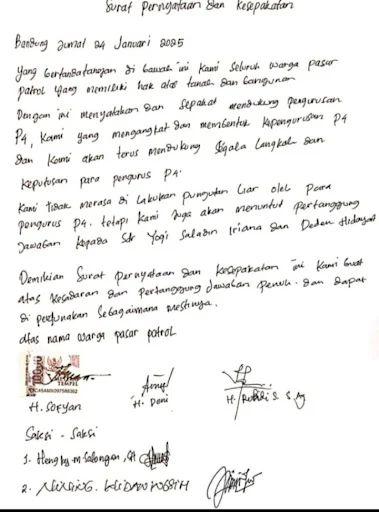 Surat Pernyataan dan Kesepakatan
Bandung Jumat 24 Januari 2025
Yang bertandatangan di bawah ini kami seluruh warga pasar
patrol yang memiliki hak atas tanah dan bangunan
Dengan ini menyatakan dan sepakat mendukung pengurusan
P4, kami yang mengangkat dan membentuk kepengurusan P4
dan kami akan terus mendukung segala langkah dan
keputusan para pengurus P4.
Kami tidak merasa di lakukan pungutan liar oleh para
pengurus P4. tetapi kami juga akan menuntut pertanggung
jawaban kepada Sdr Yogi Saladin Iriana dan Deden Hidayat
Demikian surat pernyataan dan kesepakatan ini kami buat
atas kesadaran dan pertanggung jawaban penuh. dan dapat
di pergunakan sebagaimana mestinya.
atas nama warga pasar patrol
TEMPEL
H. SOFYAN
H. Deni
H. S. Ag
Saksi - Saksi
1. Hengky
2.